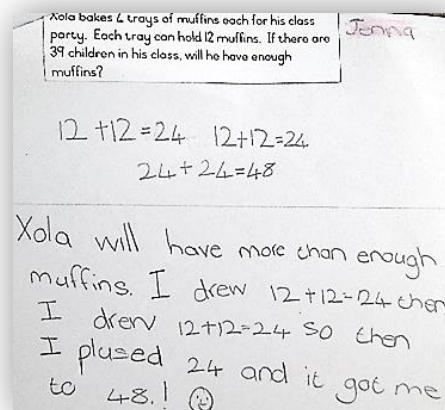 Xola bakes 4 trays of muffins each for his class
party. Each tray can hold 12 muffins. If there are
39 children in his class, will he have enough
muffins?
Jenna
12 + 12 = 24 12+12=24
24 + 24 = 48
Xola will have more than enough
muffins. I drew 12+12=24 then
I drew 12+12=24 so then
I plused 24 and it got me
to 48.!